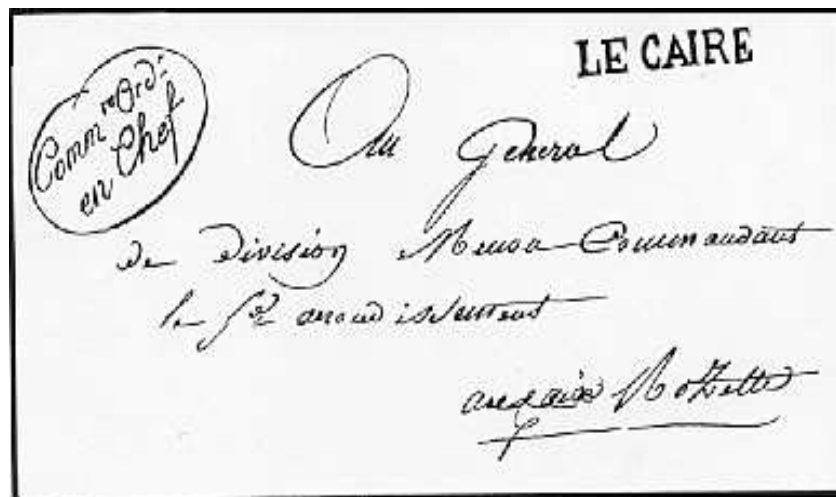 LE CAIRE
Comm.re Ord.r
en Chef
Au Général
de division Menou Commandant
le arrondissement
Rozette